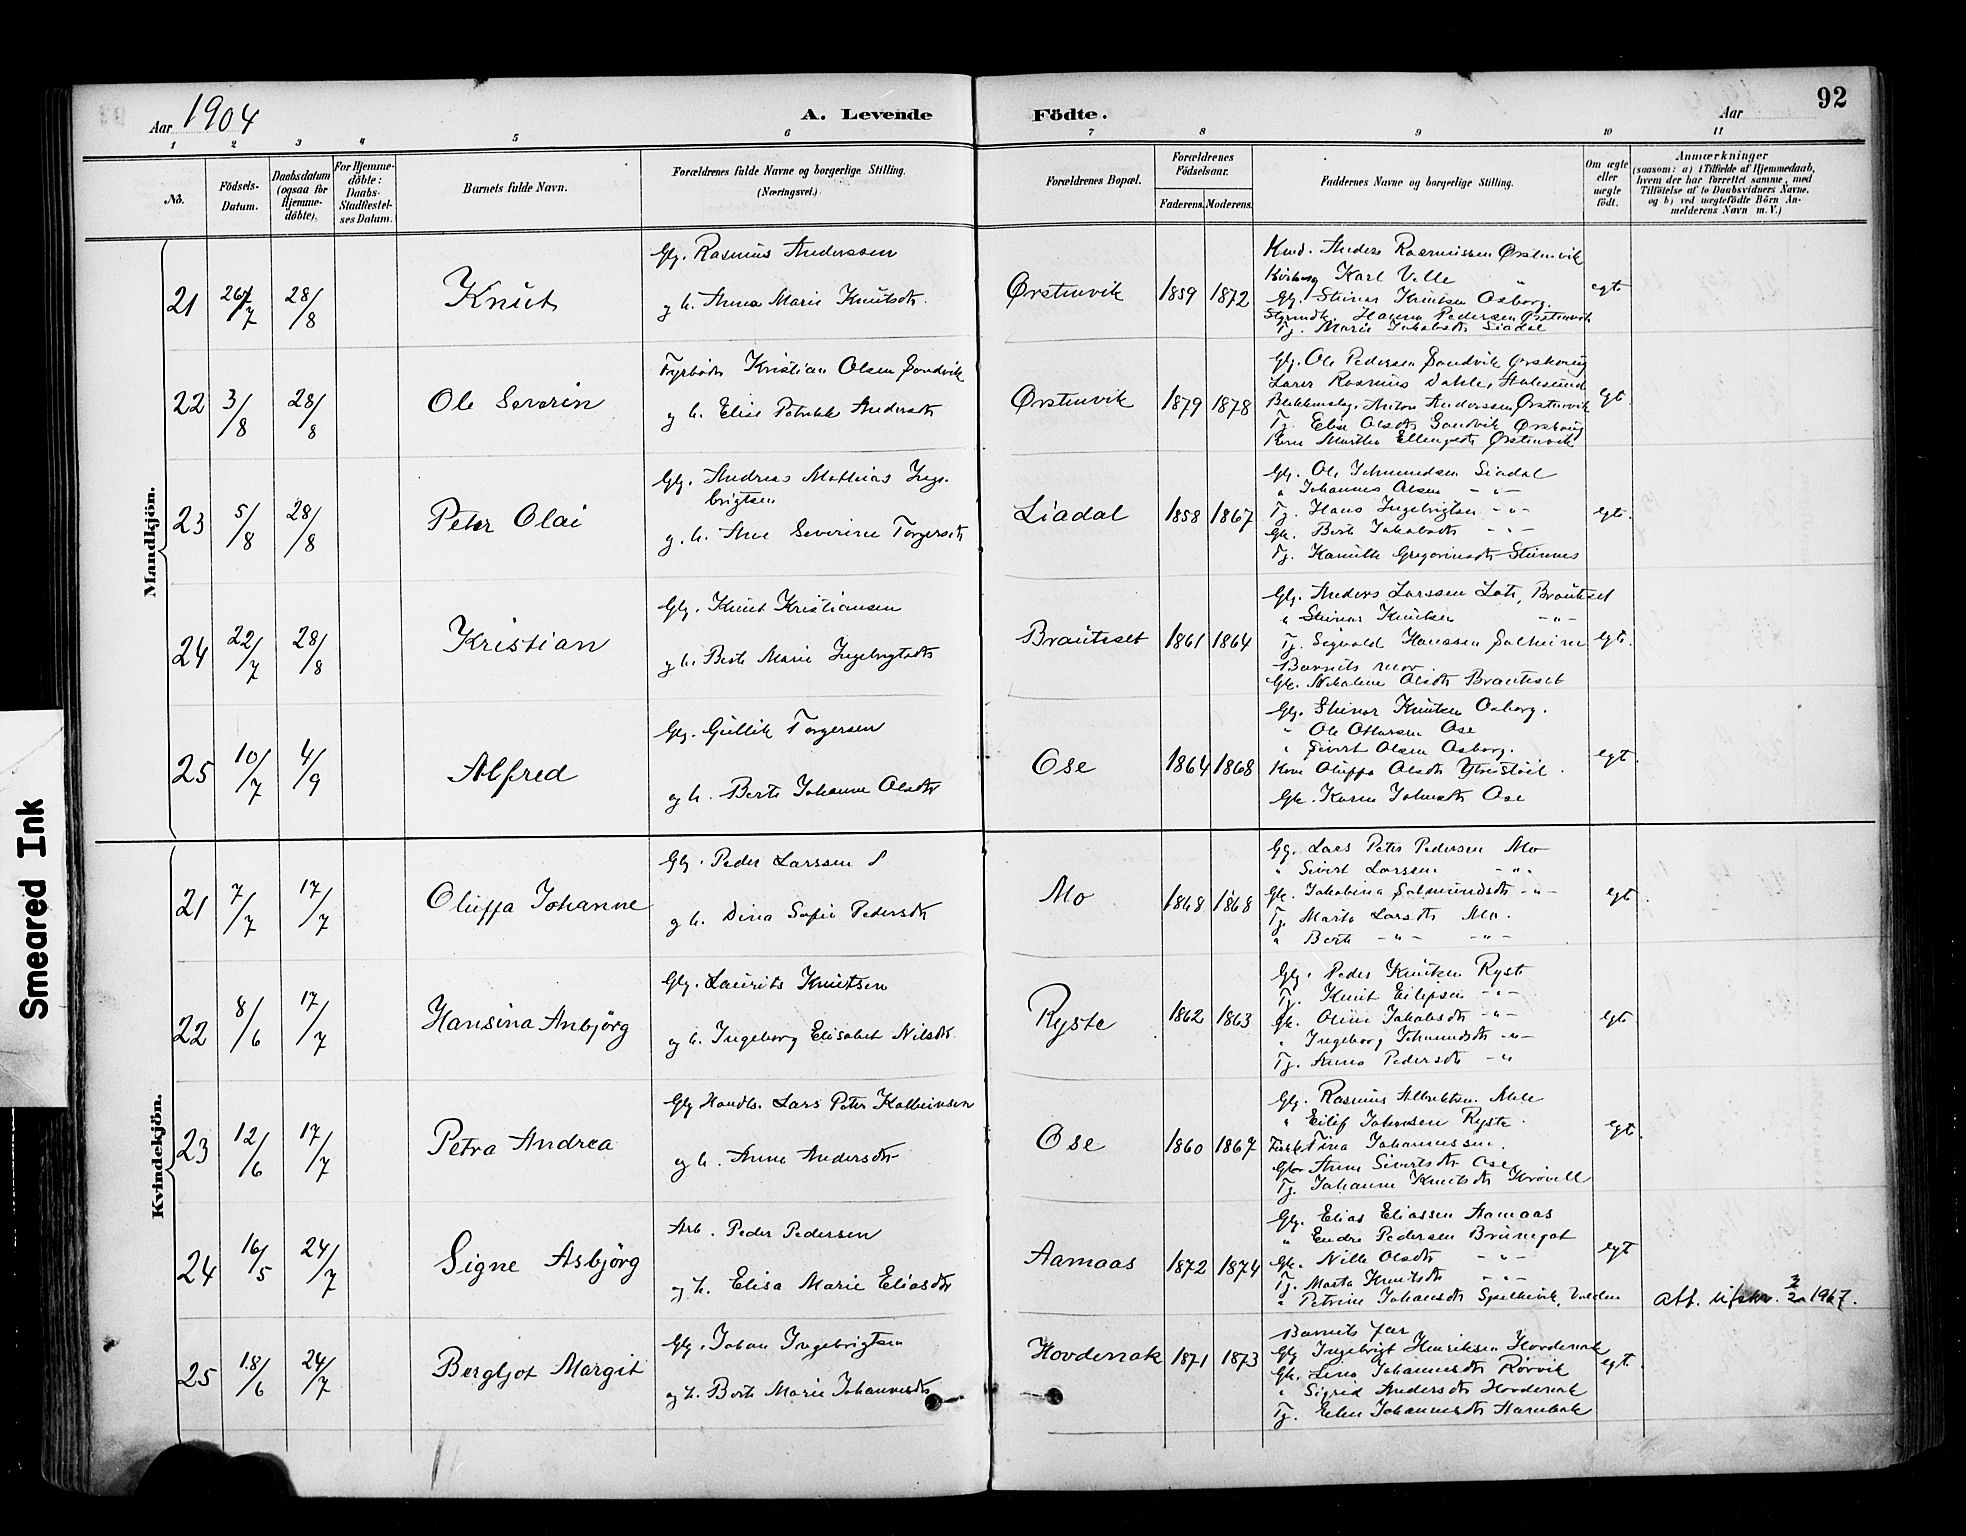 Aar 1904
A. Levende
Födte.
Aar
92
1 2 3 4 5 6 7 8 9 10 11
No.
Födsels-
Datum.
Daabsdatum
(ogsaa for
Hjemme-
döbte).
For Hjemme-
döbte:
Daabs-
Stadfæstel-
ses Datum.
Barnets fulde Navn.
Forældrenes fulde Navne og borgerlige Stilling.
(Næringsvei.)
Forældrenes Bopæl.
Forældrenes
Födselsaar.
Faderens. Moderens.
Faddernes Navne og borgerlige Stilling.
Om ægte
eller
uægte
födt.
Anmærkninger
(saasom: a) i Tilfælde af Hjemmedaab,
hvem der har forrettet samme, med
Tilföielse af to Daabsvidners Navne.
og b) ved uægtefödte Börn An-
melderens Navn m. V.)
Mandkjön.
21 26/7 28/8 Knut
Glg. Rasmus Anderssen
g h. Anna Marie Knutsdtr.
Ørstenvik 1859 1872
Anders Rasmussen Ørstenvik
Karl Velle
Glg. Steinar Knutsen Osborg.
Hanna Pedersen Ørstenvik
Tj. Marie Jakobsdtr Liadal
egte
22 3/8 28/8 Ole Severin
Fyrbøder Kristian Olsen Sandvik
g h. Elise Petrikke Andersdtr
Ørstenvik 1879 1878
Glg. Ole Pedersen Sandvik Ørskoug
Lærer Rasmus Dahle, Aalesund
Anton Anderssen Ørstenvik
Tj. Elise Olsdtr Sandvik Ørskoug
Kone Marthe Ellingsdtr Ørstenvik
egte
23 5/8 28/8 Peter Olai
Glg. Andreas Mathias Inge-
brigtsen
g. h. Ane Severine Torgersdtr
Liadal 1858 1867
Glg. Ole Johnsen Liadal
" Johannes Olsen - " -
Tj. Hans Ingebrigtsen - " -
Gk. Berte Jakobsdtr - " -
Tj. Kamilla Gregoriusdtr Steinnes
egte.
24 22/7 28/8 Kristian
Glg. Knut Kristiansen
g h. Berte Marie Ingebrigtsdtr
Brauteset 1861 1864
Glg. Anders Larssen Brauteset
" Steinar Knutsen - " -
Tj. Sigvald Hanssen Solheim
Barnets mor.
Gk. Nikoline Olsdtr Brauteset
egte.
25 10/7 4/9 Alfred
Glg. Gullik Torgersen
og h. Berte Johanne Olsdtr
Ose 1864 1868
Glg. Steinar Knutsen Osborg.
" Ole Ottarsen Ose
" Sivert Olsen Osborg.
Kone Oluffa Olsdtr
Gk. Karen Johnsdtr Ose
egte.
Kvindekjön.
21 7/7 17/7 Oluffa Johanne
Glg. Peder Larssen
g h. Dina Sofie Pedersdtr
Mo 1868 1868
Glg. Lars Peter Pedersen Mo
" Sivert Larssen - " -
Gk. Jakobina Salmundsdtr - " -
Tj. Marte Larsdtr Mo.
" Berte - " - - " -
egte
22 8/6 17/7 Hansina Anbjörg
Glg. Laurits Knutsen
og h. Ingeborg Elisabet Nilsdtr.
Ryste 1862 1863
Glg. Peder Knutsen Ryste
Tj. Knut Eilifsen - " -
Gk. Oline Jakobsdtr - " -
" Ingeborg Johnsdtr - " -
Tj. Anna Pedersdtr - "
egte
23 12/6 17/7 Petra Andrea
Glg Handls. Lars Peter Kolbeinsen
og h. Anne Andersdtr
Ose 1860 1867
Glg. Rasmus Albriktsen Mele
" Eilif Johansen Ryste.
Tina Johannessen.
Anne Sivertsdtr Ose
Tj. Johanne Knutsdtr Krövell
egte.
24 16/5 24/7 Signe Asbjörg
Arb. Peder Pedersen
og h. Elisa Marie Eliasdtr
Aamaas 1872 1874
Glg. Elias Eliassen Aamaas
" Endre Pedersen Brungot
Gk. Nille Olsdtr - " -
Tj. Marta Knutsdtr - " -
" Petrine Johansdtr Spjelkevik, Volden
egte
att. utskr. 3/2 1967.
25 18/6 24/7 Bergljot Margit
Glg. Johan Ingebrigtsen
og h. Berte Marie Johannesdtr
Hovdenak 1871 1873
Barnets far
Glg Ingebrigt Henriksen Hovdenak
Gk. Lina Johannesdtr Rörvik
" Sigrid Andersdtr Hovdenak
Tj. Elen Johannesdtr Hareide
egte.
Smeared Ink